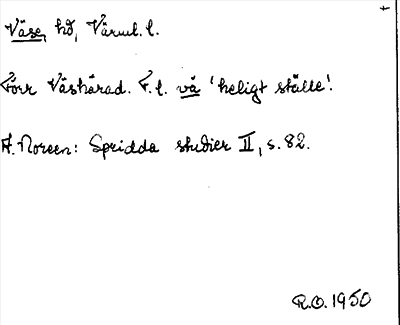 Väse, hd, Värml. l.
Förr Väshärad. F. l. vä 'heligt ställe'.
A. Noreen: Spridda studier II, s. 82.
R.O. 1950